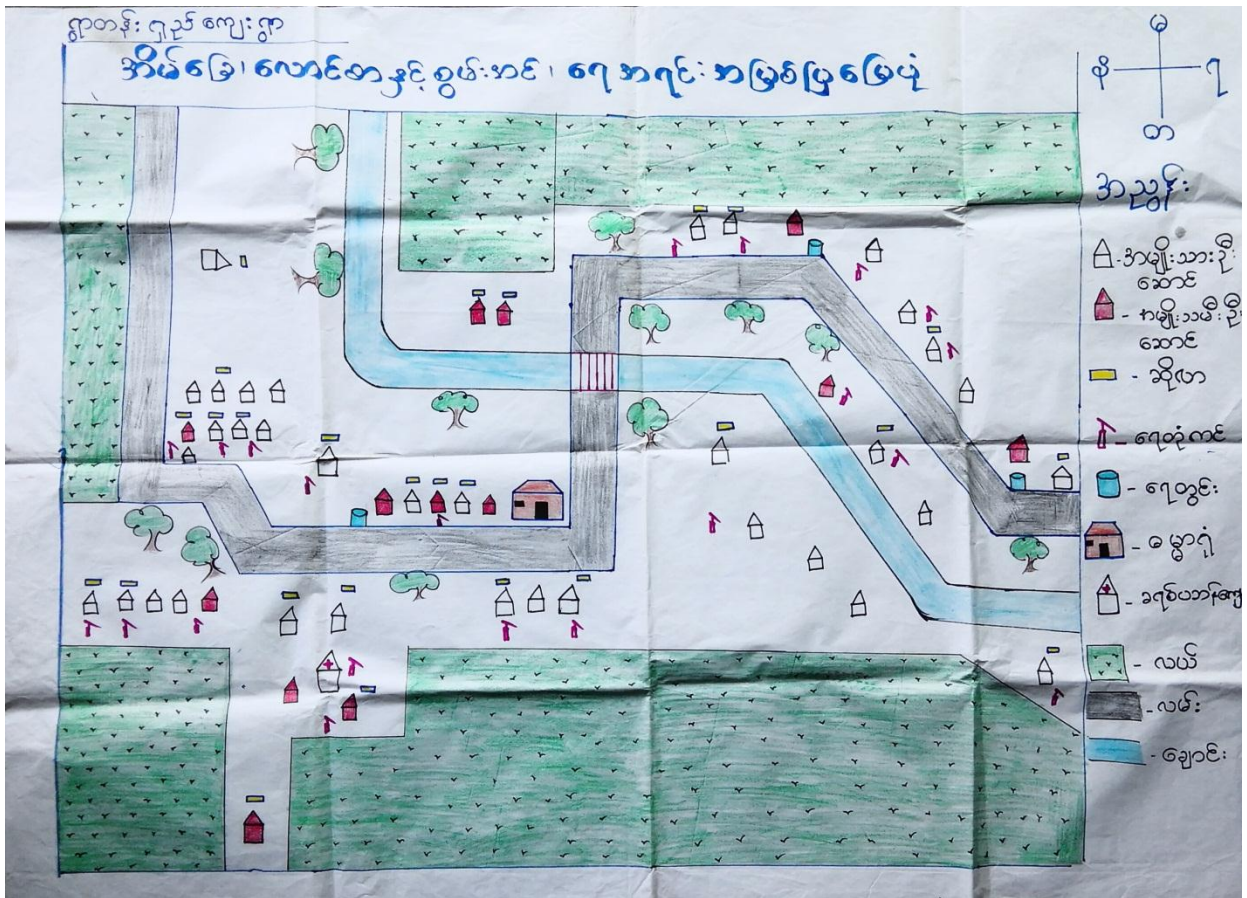 ရွာတန်းရှည် ကျေးရွာ
အိမ်ခြေ၊ လောင်စာနှင့် စွမ်းအင်၊ ရေအရင်းအမြစ်ပြမြေပုံ
မ
န
ရ
တ
အညွှန်း
- အမျိုးသားဦး
ဆောင်
- အမျိုးသမီးဦး
ဆောင်
- ဆိုလာ
- ရေတုံကင်
- ရေတွင်း
- ဓမ္မာရုံ
- ခရစ်ယာန်ကျေ
- လယ်
- လမ်း
- ချောင်း